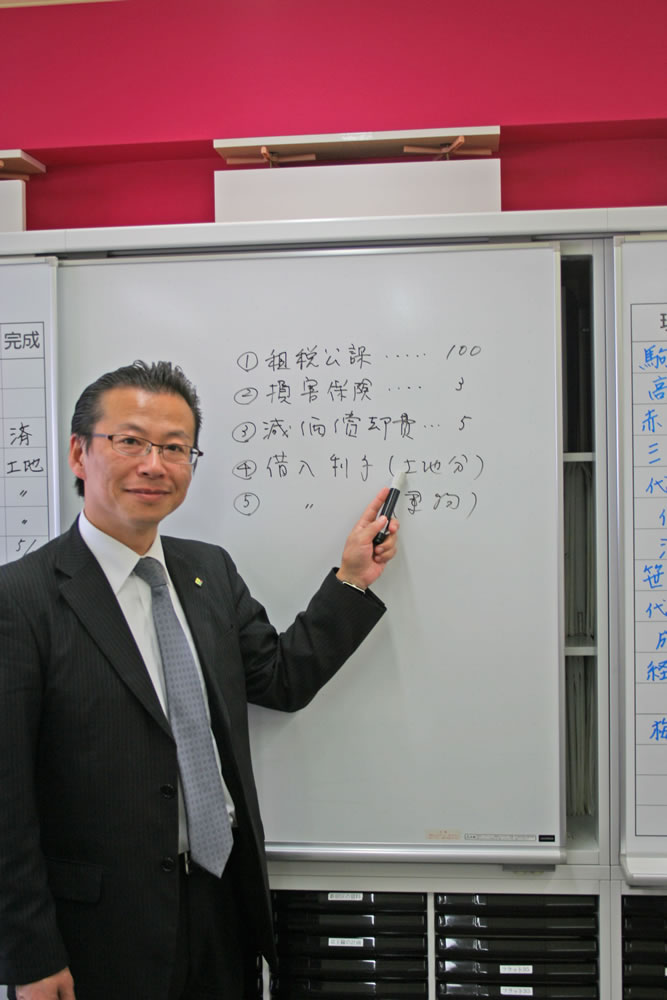 完成
済
土地
〃
〃
5/
① 租税公課 ‥‥‥ 100
② 損害保険 ‥‥ 3
③ 減価償却費 … 5
④ 借入利子(土地分)
⑤ 〃 建物)
高
赤
三
代
笹
代
成
経
梅